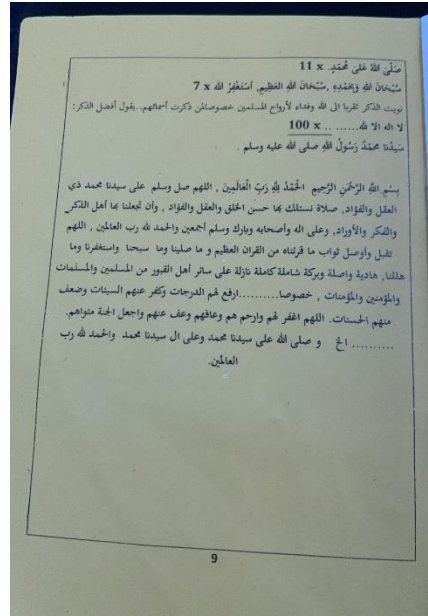 صَلَّى اللهُ عَلَى مُحَمَّدٍ. 11 x
سُبْحَانَ اللهِ وَبِحَمْدِهِ ,سُبْحَانَ اللهِ العَظِيمِ, أَسْتَغْفِرُ الله 7 x
نويت الذكر تقربا الى الله وفداء لأرواح المسلمين خصوصالمن ذكرت أسمائهم..يقول أفضل الذكر:
لا اله الا لله...... .. 100 x
سَيِّدُنَا مُحَمَّدٌ رَسُولُ اللهِ صلى الله عليه وسلم .
بِسْمِ اللهِ الرَّحْمَنِ الرَّحِيمِ الحَمْدُ لِلَّهِ رَبِّ الْعَالَمِينَ , اللهم صل وسلم على سيدنا محمد ذي
العقل والفؤاد, صلاة نستلك بها حسن الخلق والعقل والفؤاد , وأن تجعلنا بها أهل الذكر
والفكر والأوراد, وعلى اله وأصحابه وبارك وسلم أجمعين والحمد لله رب العالمين , اللهم
تقبل وأوصل ثواب ما قرئناه من القران العظيم و ما صلينا وما سبحنا واستغفرنا وما
هللنا, هادية واصلة وبركة شاملة كاملة نازلة على سائر أهل القبور من المسلمين والمسلمات
والمؤمنين والمؤمنات , خصوصا..........ارفع لهم الدرجات وكفر عنهم السيئات وضعف
منهم الحسنات. اللهم اغفر لهم وارحم هم وعافهم وعف عنهم واجعل الجنة مثواهم.
.......... الخ و صلى الله على سيدنا محمد وعلى ال سيدنا محمد والحمد لله رب
العالمين.
9